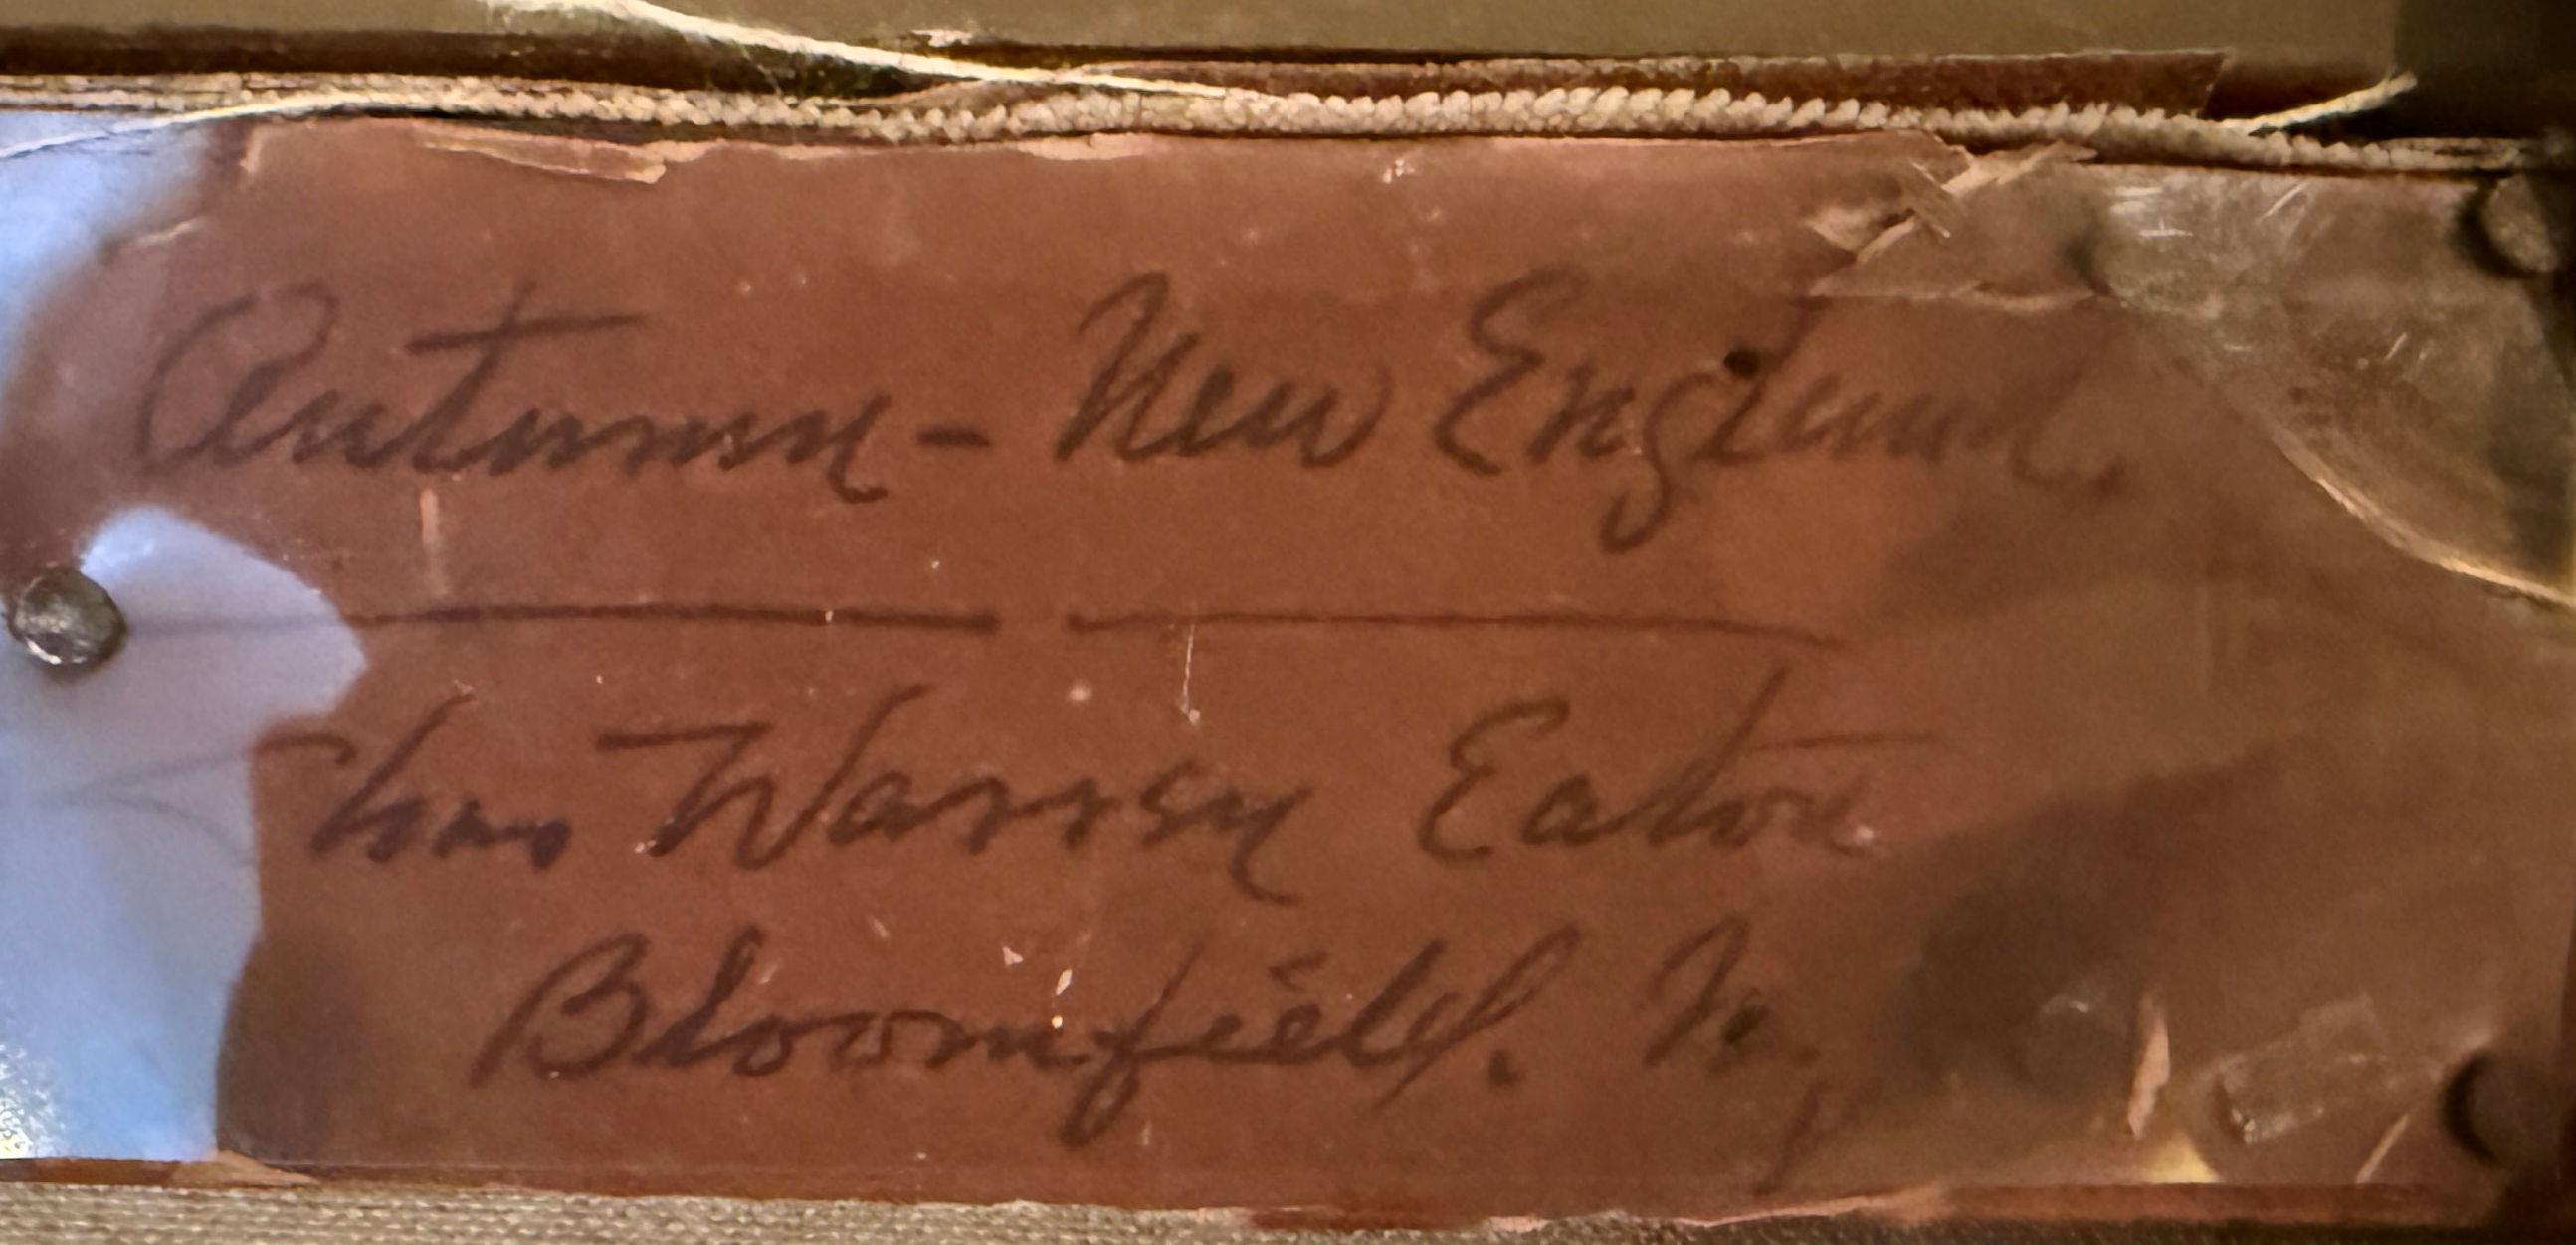 Autumn - New England
Chas Warren Eaton
Bloomfield. N.